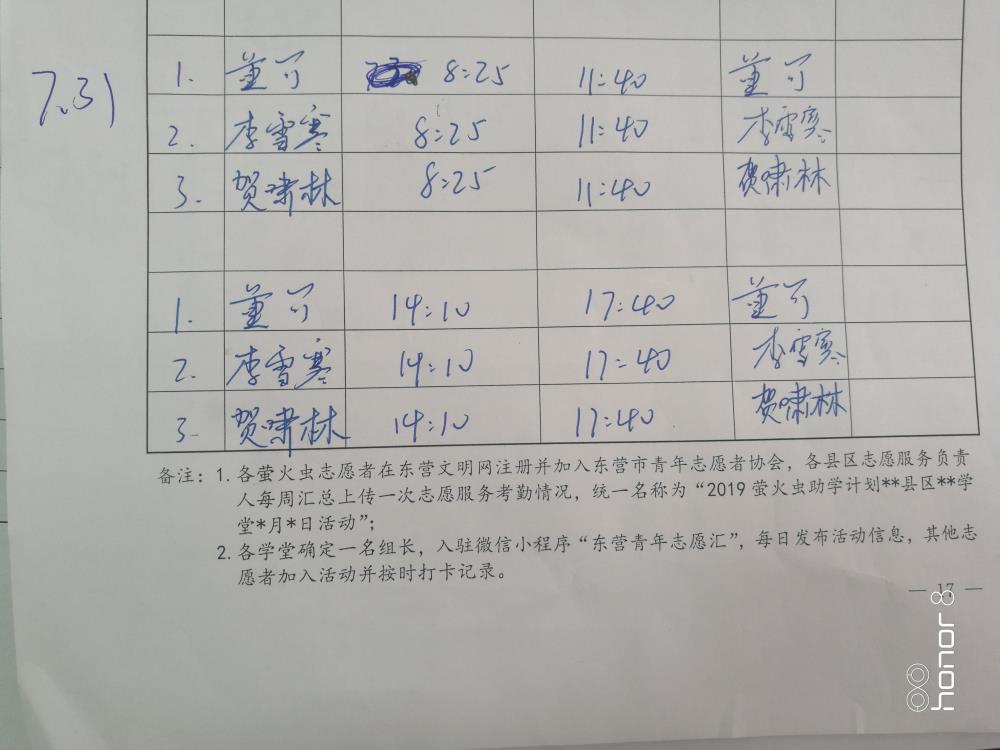 7.31
1. 董可 8:25 11:40 董可
2. 李雪寒 8:25 11:40 李雪寒
3. 贺啸林 8:25 11:40 贺啸林
1. 董可 14:10 17:40 董可
2. 李雪寒 14:10 17:40 李雪寒
3. 贺啸林 14:10 17:40 贺啸林
备注：1. 各萤火虫志愿者在东营文明网注册并加入东营市青年志愿者协会，各县区志愿服务负责
人每周汇总上传一次志愿服务考勤情况，统一名称为“2019 萤火虫助学计划**县区**学
堂*月*日活动”；
2. 各学堂确定一名组长，入驻微信小程序“东营青年志愿汇”，每日发布活动信息，其他志
愿者加入活动并按时打卡记录。
— 17 —
honor 8